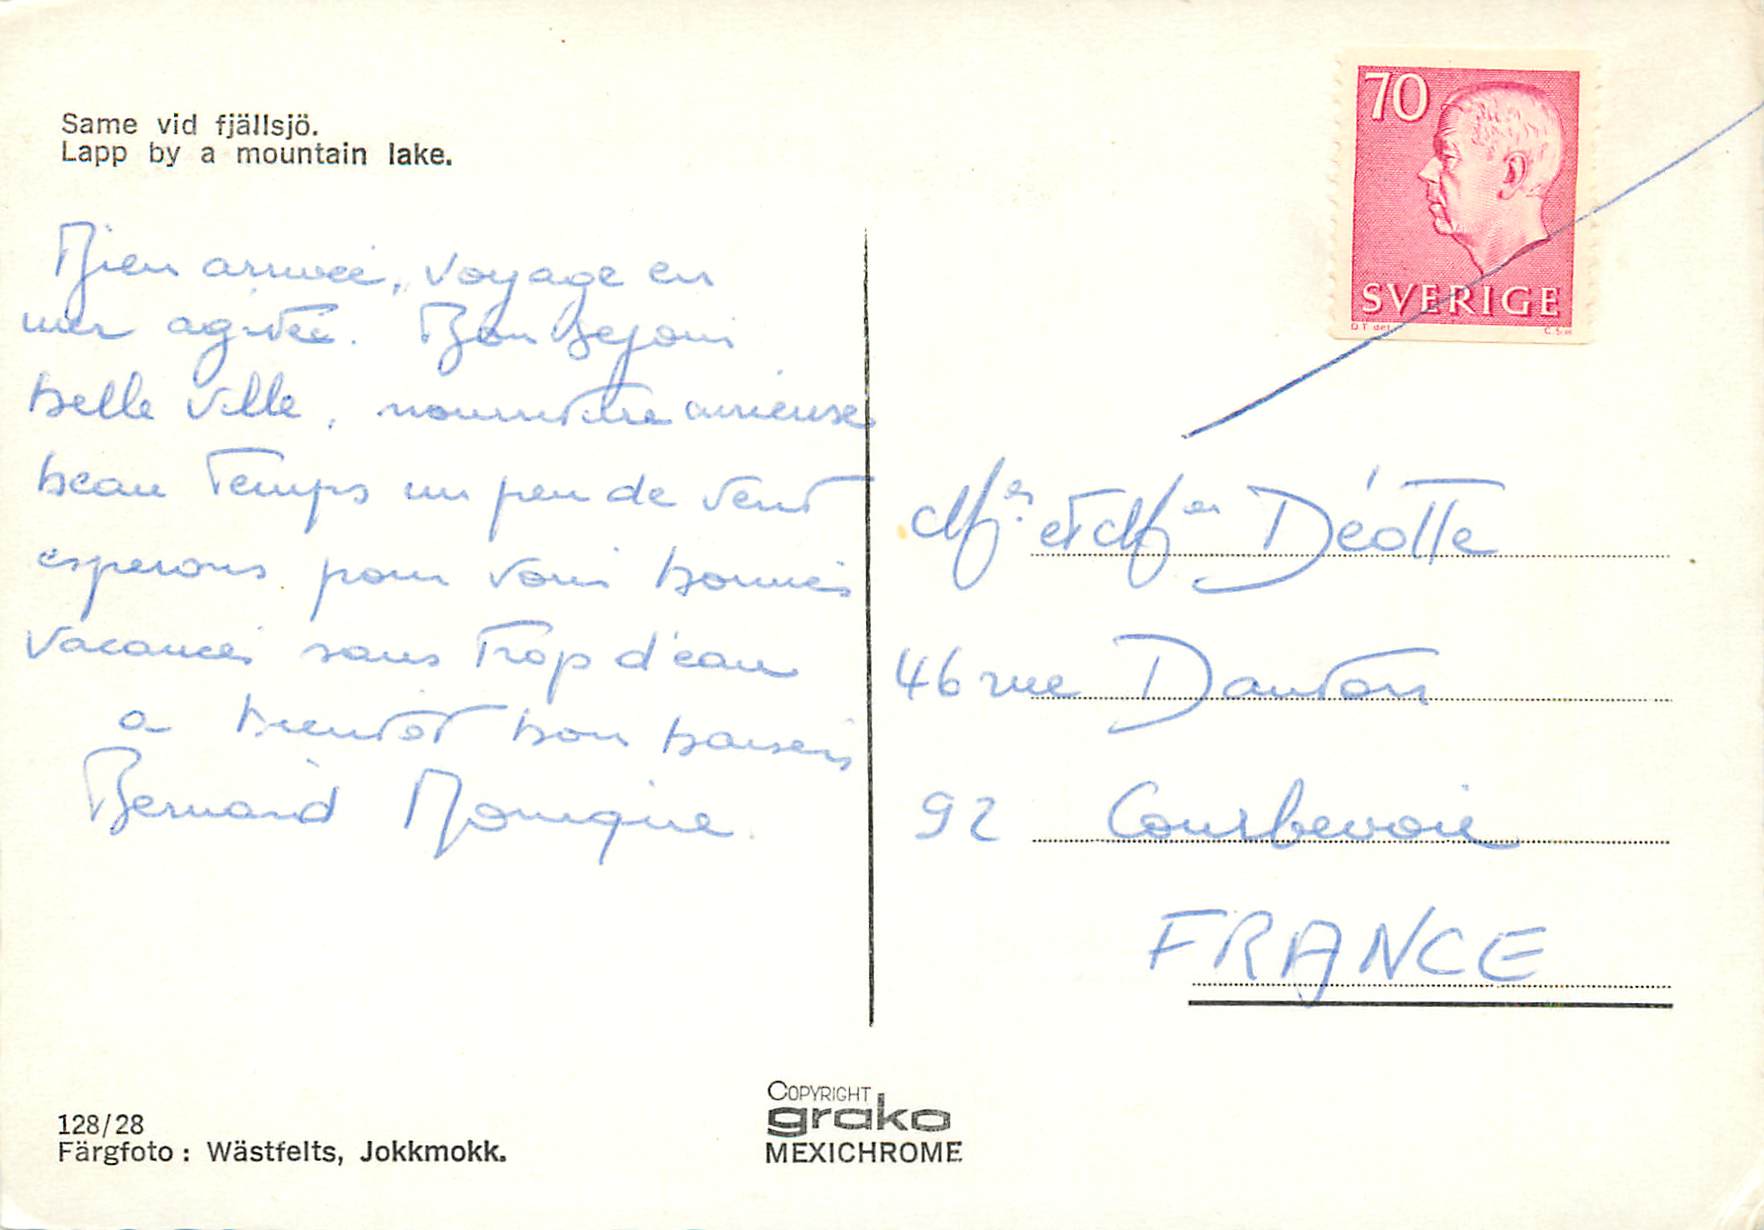 Same vid fjällsjö.
Lapp by a mountain lake.
70
SVERIGE
Bien arrivée, voyage en
mer agitée. Bon sejour
belle ville, nourriture curieuse
beau temps un peu de vent
esperons pour vous bonnes
vacances sans trop d'eau
a bientôt bon baisers
Bernard Monique.
Mr. et Mme Déotte
46 rue Danton
92 Courbevoie
FRANCE
128/28
Färgfoto : Wästfelts, Jokkmokk.
COPYRIGHT
grako
MEXICHROME